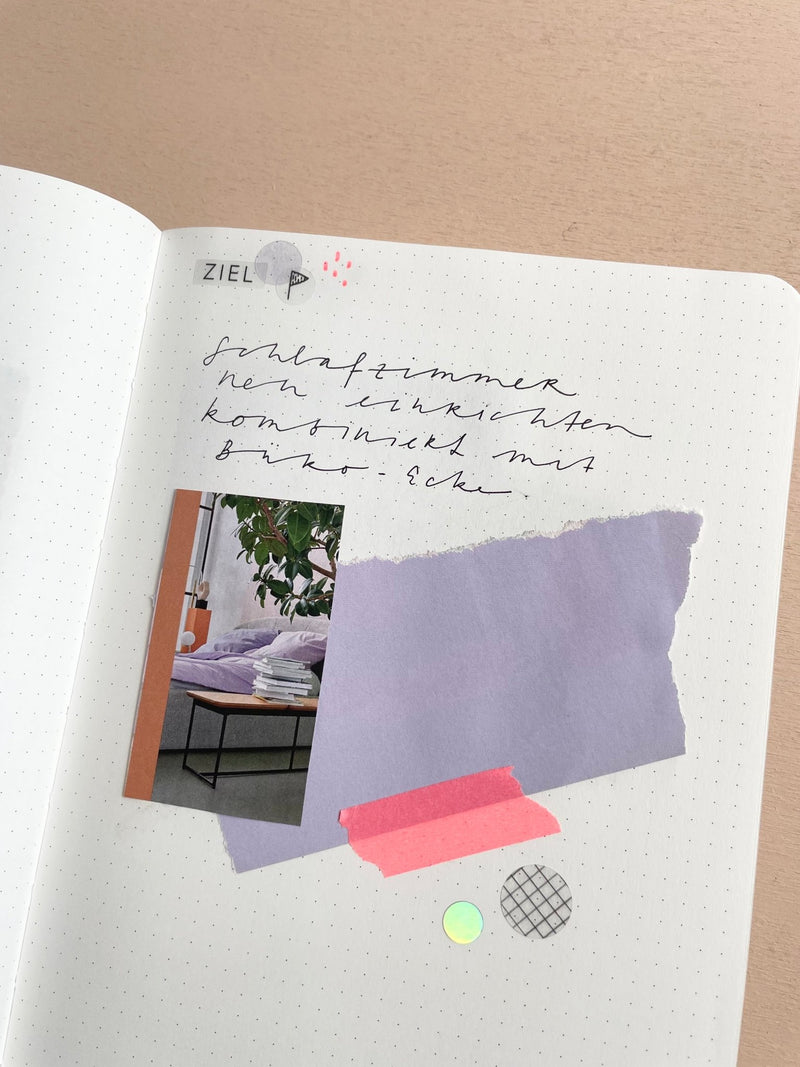 ZIEL
Schlafzimmer
neu einrichten
kombiniert mit
Büro-Ecke